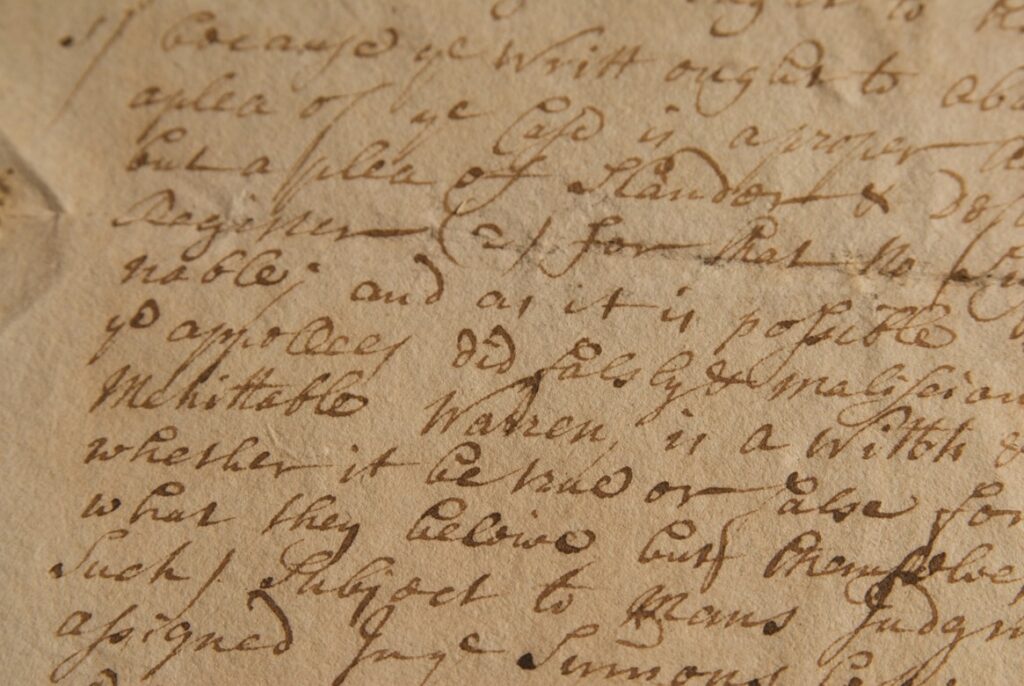 to
because ye Writt ought to
aplea of ye Case is a proper
but a plea of Slander &
Register (2) for that No
nable; and as it is possible
ye appollees did falsly &
Mehittable Warren, is a Witch &
whether it be true or false for
what they beleive but themselve
Such) Subject to Mans Judgm
assigned In ye Sumons